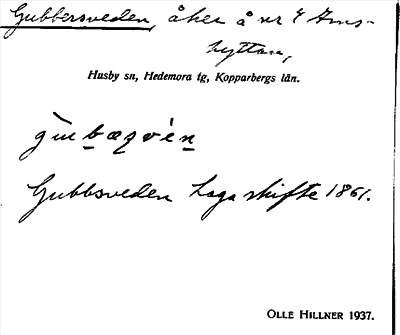 Gubbersveden, åker å nr 4 Ams-
hyttan,
Husby sn, Hedemora tg, Kopparbergs län.
Gubbsveden Laga skifte 1861.
OLLE HILLNER 1937.